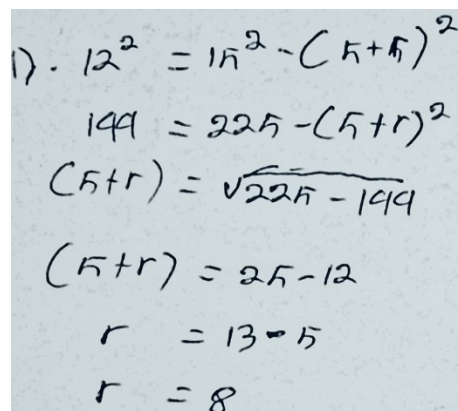 1). 12² = 15² - (5+5)²
144 = 225 - (5+r)²
(5+r) = √225 - 144
(5+r) = 25 - 12
r = 13 - 5
r = 8